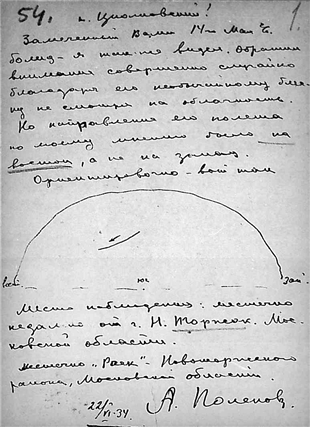 54. 1.
к. Циолковский!
Замеченный Вами 14го Мая с/г.
болид - я также видел. Обратил
внимание совершенно случайно
благодаря его необычайному блес-
ку не смотря на облачность.
Но направление его полета
по моему мнению было на
восток, а не на запад.
Ориентировочно - вот так
вост юг зап.
Место наблюдения: местечко
недалеко от г. Н. Торжок. Мос-
ковской области.
местечко „Раек" - Новоторжского
района, Московской области.
22/VI-34. А. Поленов